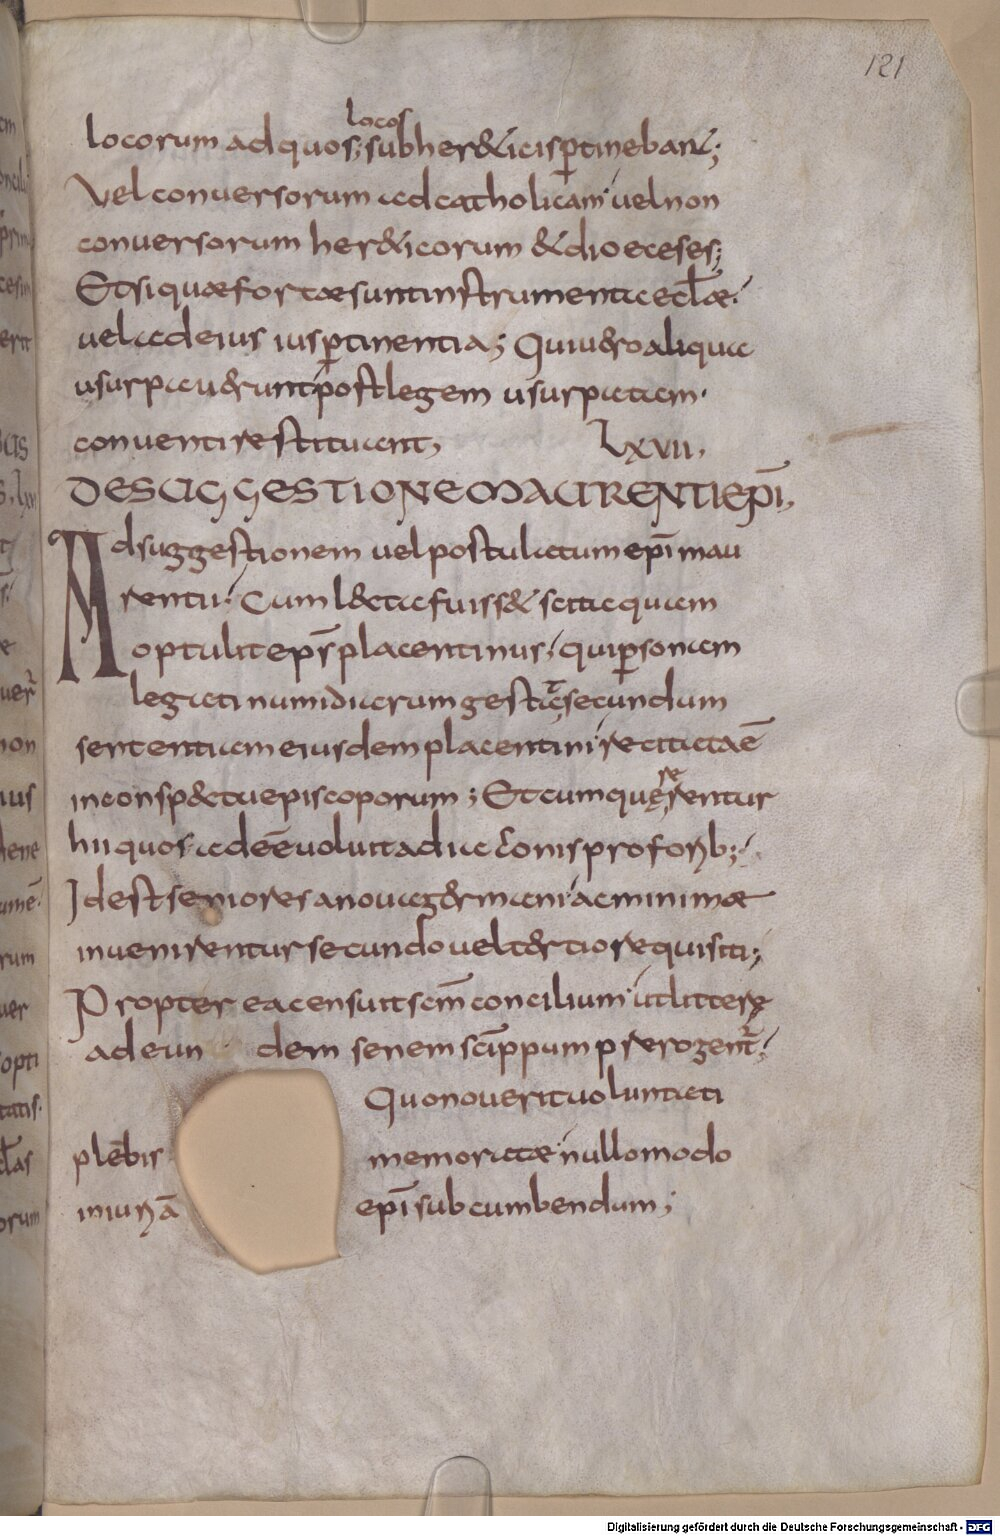 121
locos
locorum ad quos; sub her&icis p̲tinebant;
Vel conversorum ad catholicam vel non
conversorum her&icorum & dioeceses;
Et si quae fortae sunt instrumenta eclae.
vel ad eius ius p̲tinentia; Qui u&ro aliqua
usurpau&runt post legem usurpatam.
conventi restituant, Lxvii,
DE SUGGESTIONE MAURENTI EPĪ,
Ad suggestionem vel postulatum epī mau
renti. Cum l&ctae fuiss& setta quam
optulit eps placentinus, qui p̲sonam
legati numidiarum gestaę secundum
sententiam eiusdem placentini recitata ē
in consp&ctu episcoporum; Et cum quęrrentur
re
hii quos ad eē voluit ad uaconis pro forib;
Id est seniores a nova g&rmani ac minimae
invenirentur secundo vel t&rtio requisiti;
Propter ea censuit scm̄ concilium ut litterę
ad eun dem senem scippum prerogent̄
Quo noverit voluntati
plebis memoratae nullo modo
iniuriā epī subcumbendum;
Digitalisierung gefördert durch die Deutsche Forschungsgemeinschaft - DFG